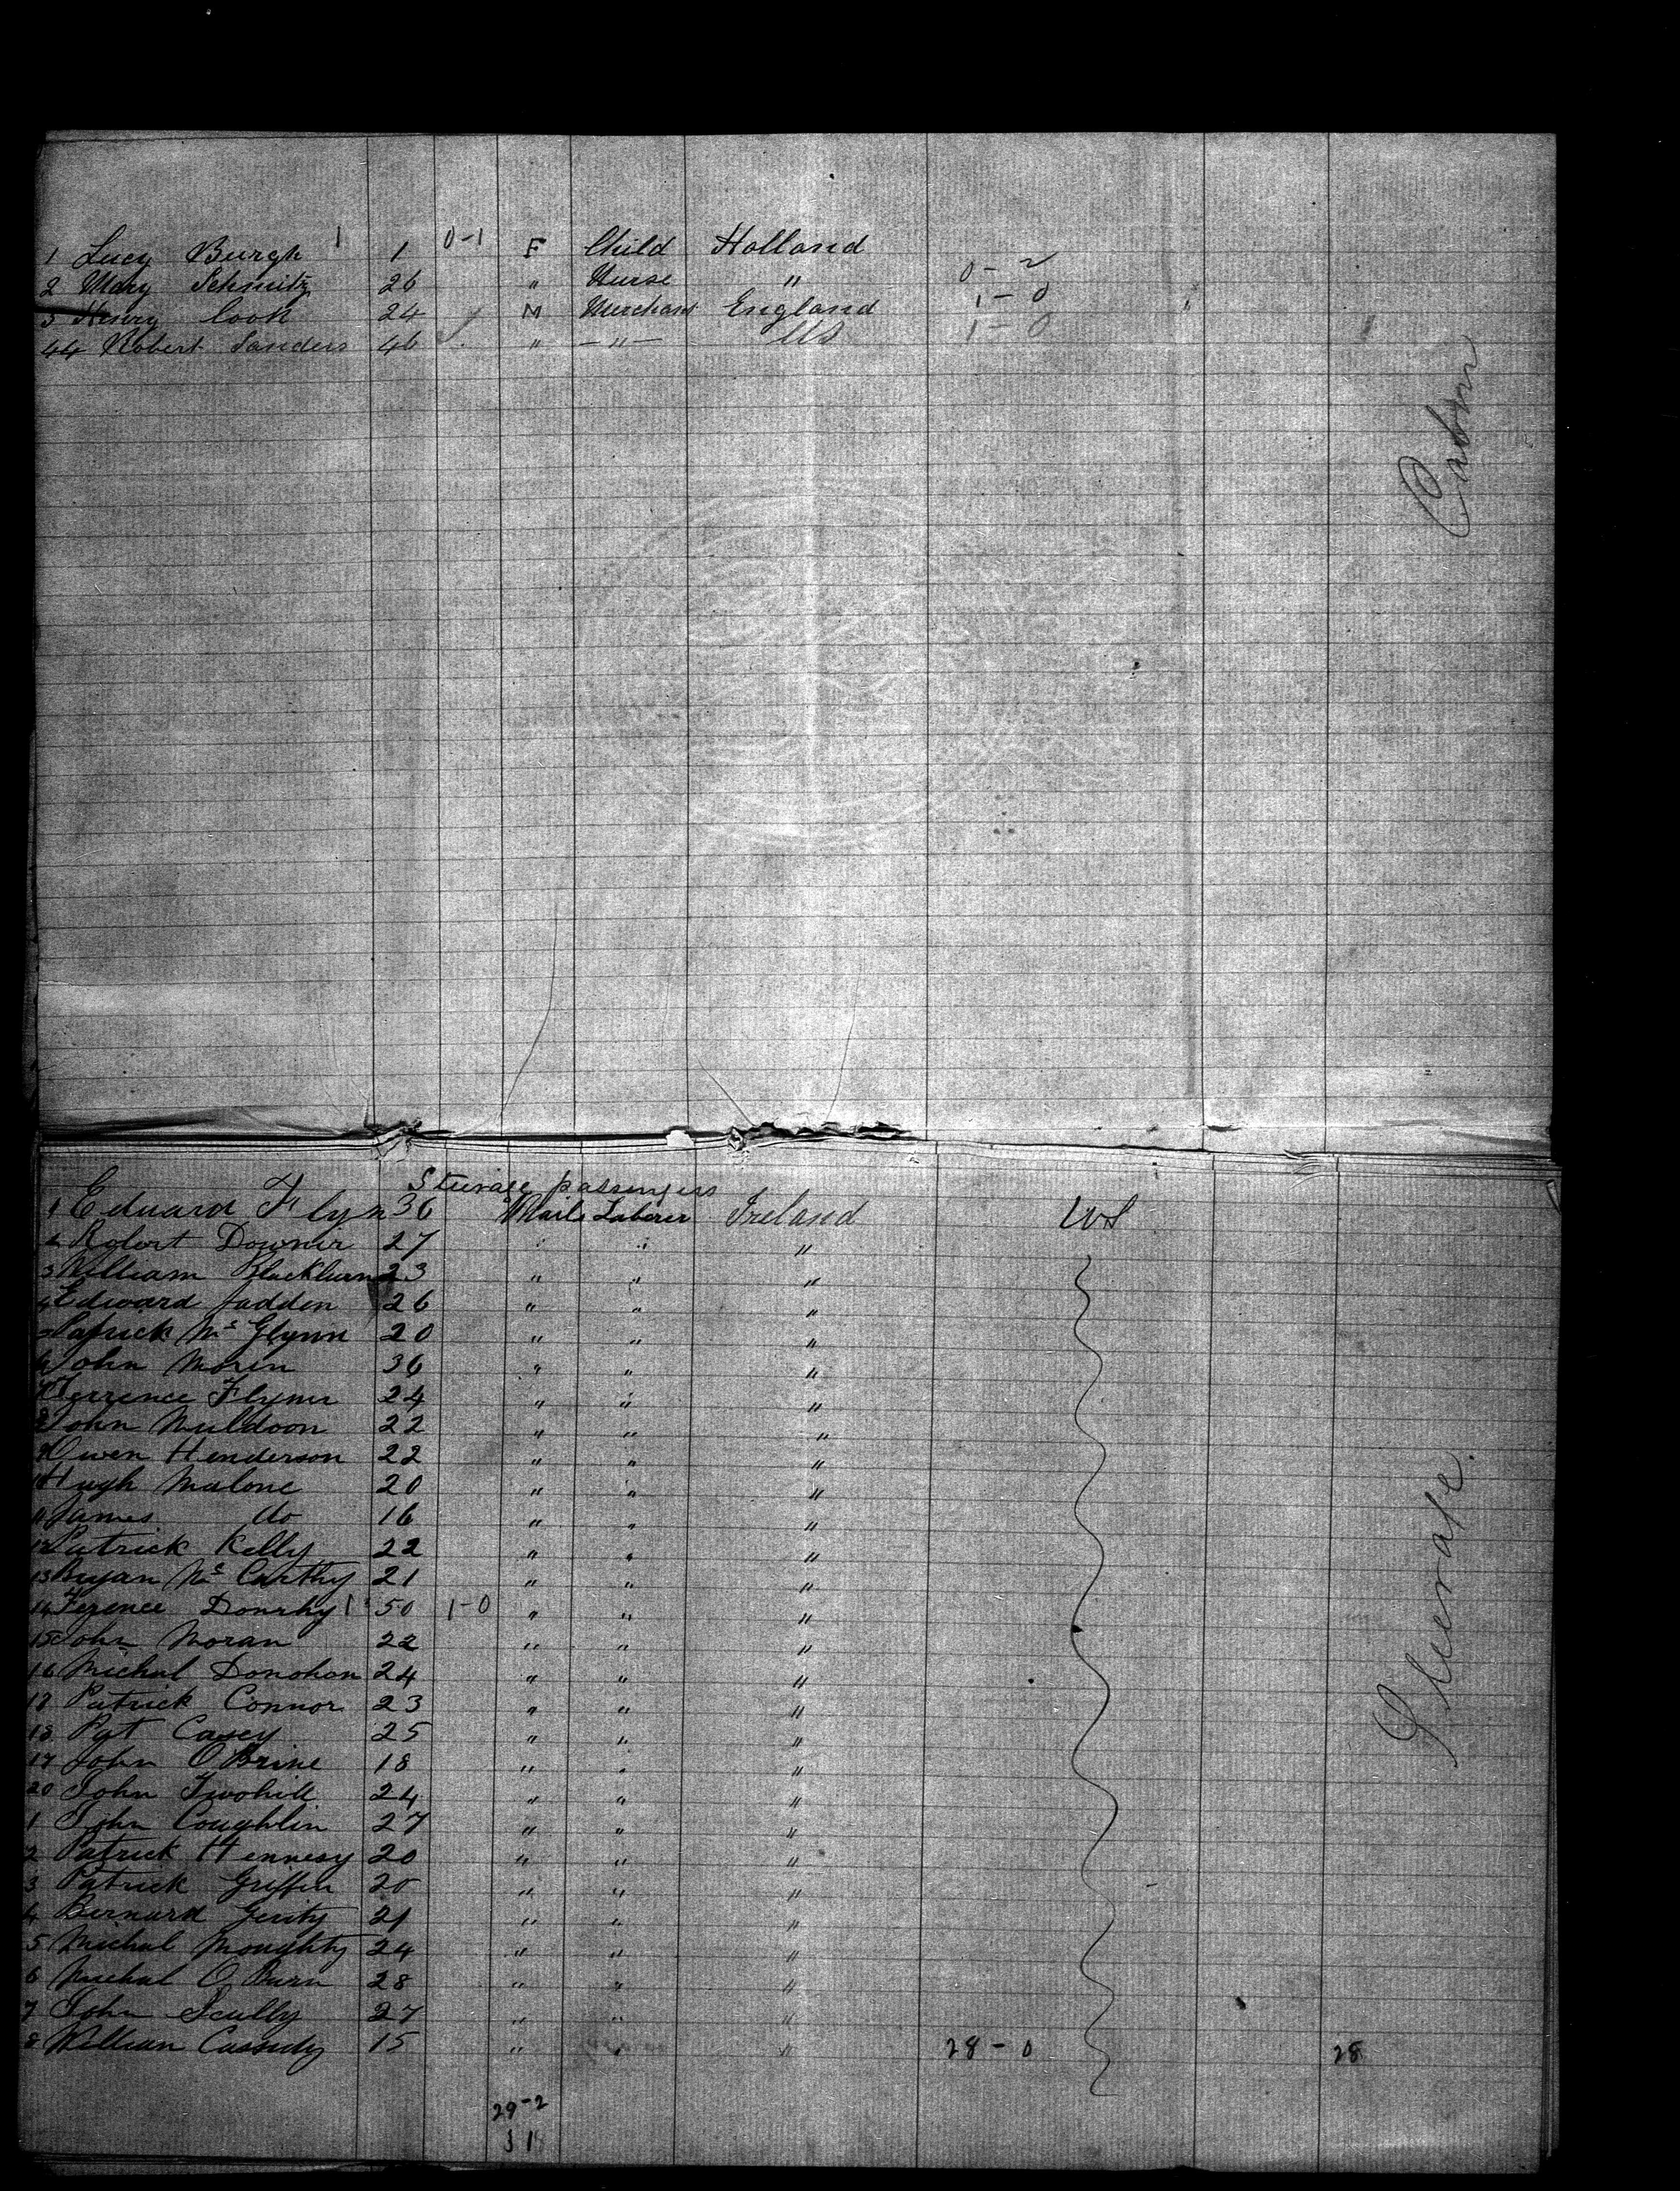 1 Lucy Burgh 1 1 0-1 F Child Holland
2 Mary Schmitz 26 " Nurse " 0-2
3 Henry Cook 24 M Merchant England 1-0
44 Robert Sanders 46 " -"- US 1-0
Cabin
Steurage passengers
1 Eduard Flyn 36 Mail Laberer Ireland US
2 Robert Downer 27 " " "
3 William Blackburn 23 " " "
4 Edward Fadden 26 " " "
5 Patrick Mc Glynn 20 " " "
6 John Moren 36 " " "
7 Terrence Flynn 24 " " "
8 John Muldoon 22 " " "
9 Owen Henderson 22 " " "
10 Hugh Malone 20 " " "
11 James do 16 " " "
12 Patrick Kelly 22 " " "
13 Bryan Mc Carthy 21 " " "
14 Ference Donrhy 1 50 1-0 " " "
15 John Moran 22 " " "
16 Michal Donohan 24 " " "
17 Patrick Connor 23 " " "
18 Pat Casey 25 " " "
19 John O Brine 18 " " "
20 John Twohill 24 " " "
1 John Coughlin 27 " " "
2 Patrick Hennesy 20 " " "
3 Patrick Griffin 20 " " "
4 Bernard Gerity 21 " " "
5 Michal Moughty 24 " " "
6 Michal O Burn 28 " " "
7 John Scully 27 " " "
8 William Cassidy 15 " " " 28-0 28
Steerage
29-2
31